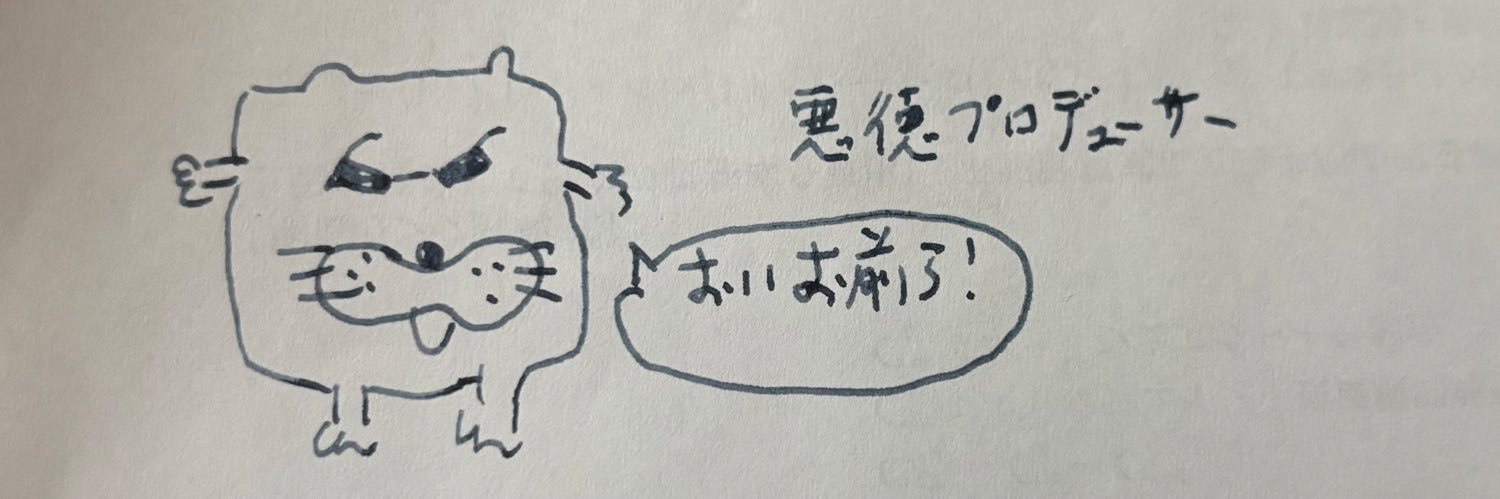 悪徳プロデューサー
おいお前ら!